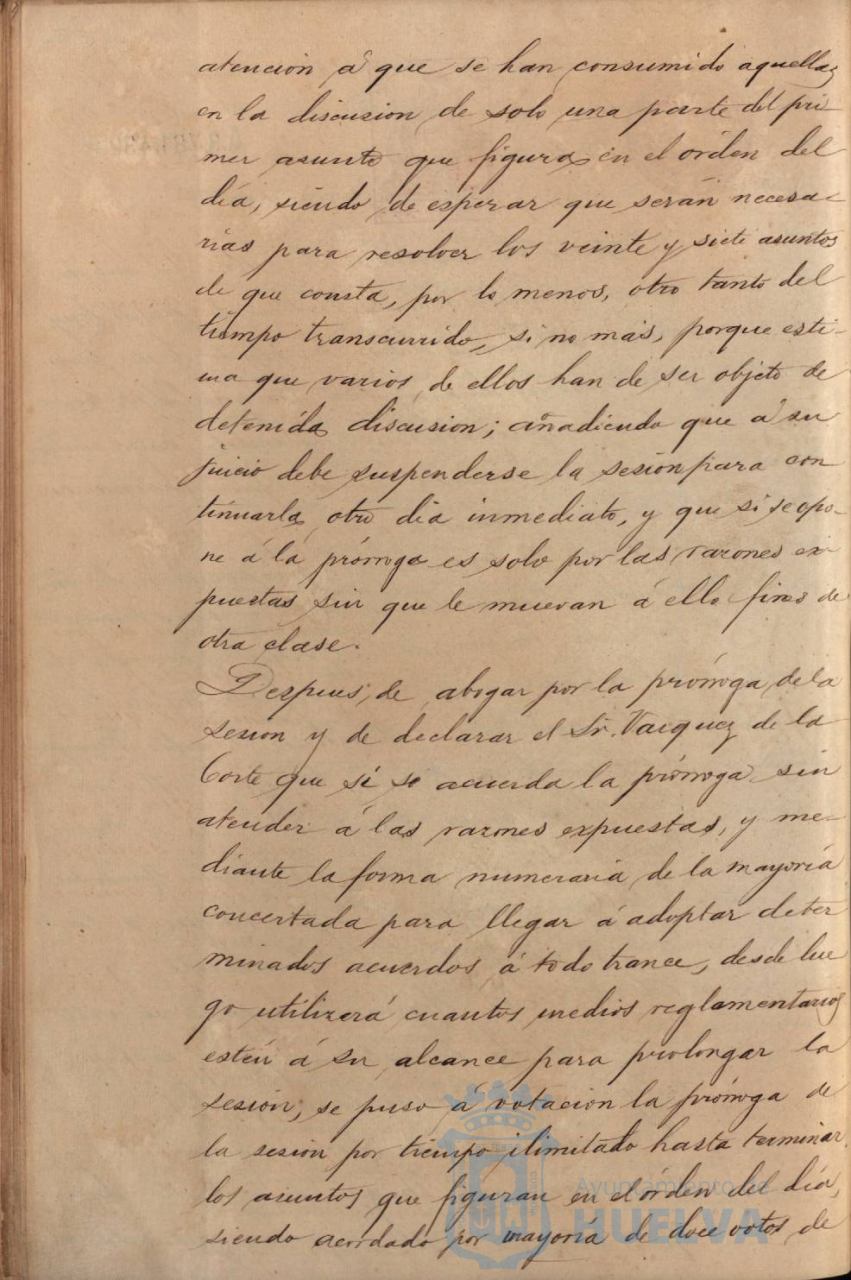 atencion á que se han consumido aquellas
en la discusion de solo una parte del pri
mer asunto que figura en el órden del
día, siendo de esperar que serán necesa-
rias para resolver los veinte y siete asuntos
de que consta, por lo menos, otro tanto del
tiempo transcurrido, si no mas, porque esti-
ma que varios de ellos han de ser objeto de
detenida discusion; añadiendo que á su
juicio debe suspenderse la sesión para con
tinuarla otro dia inmediato, y que si se opo-
ne á la prórroga es solo por las razones ex-
puestas sin que le muevan á ello fines de
otra clase.
Despues, de abogar por la prórroga de la
sesion y de declarar el Sr. Vazquez de la
Corte que si se acuerda la prórroga sin
atender á las razones expuestas, y me-
diante la forma numeraria de la mayoría
concertada para llegar á adoptar deter
minados acuerdos á todo trance, desde lue
go utilizará cuantos medios reglamentarios
estén á su alcance para prolongar la
sesión, se puso á votacion la prórroga de
la sesión por tiempo ilimitado hasta terminar
los asuntos que figuran en el órden del día,
siendo acordado por mayoría de doce votos de
Ayuntamiento de
HUELVA